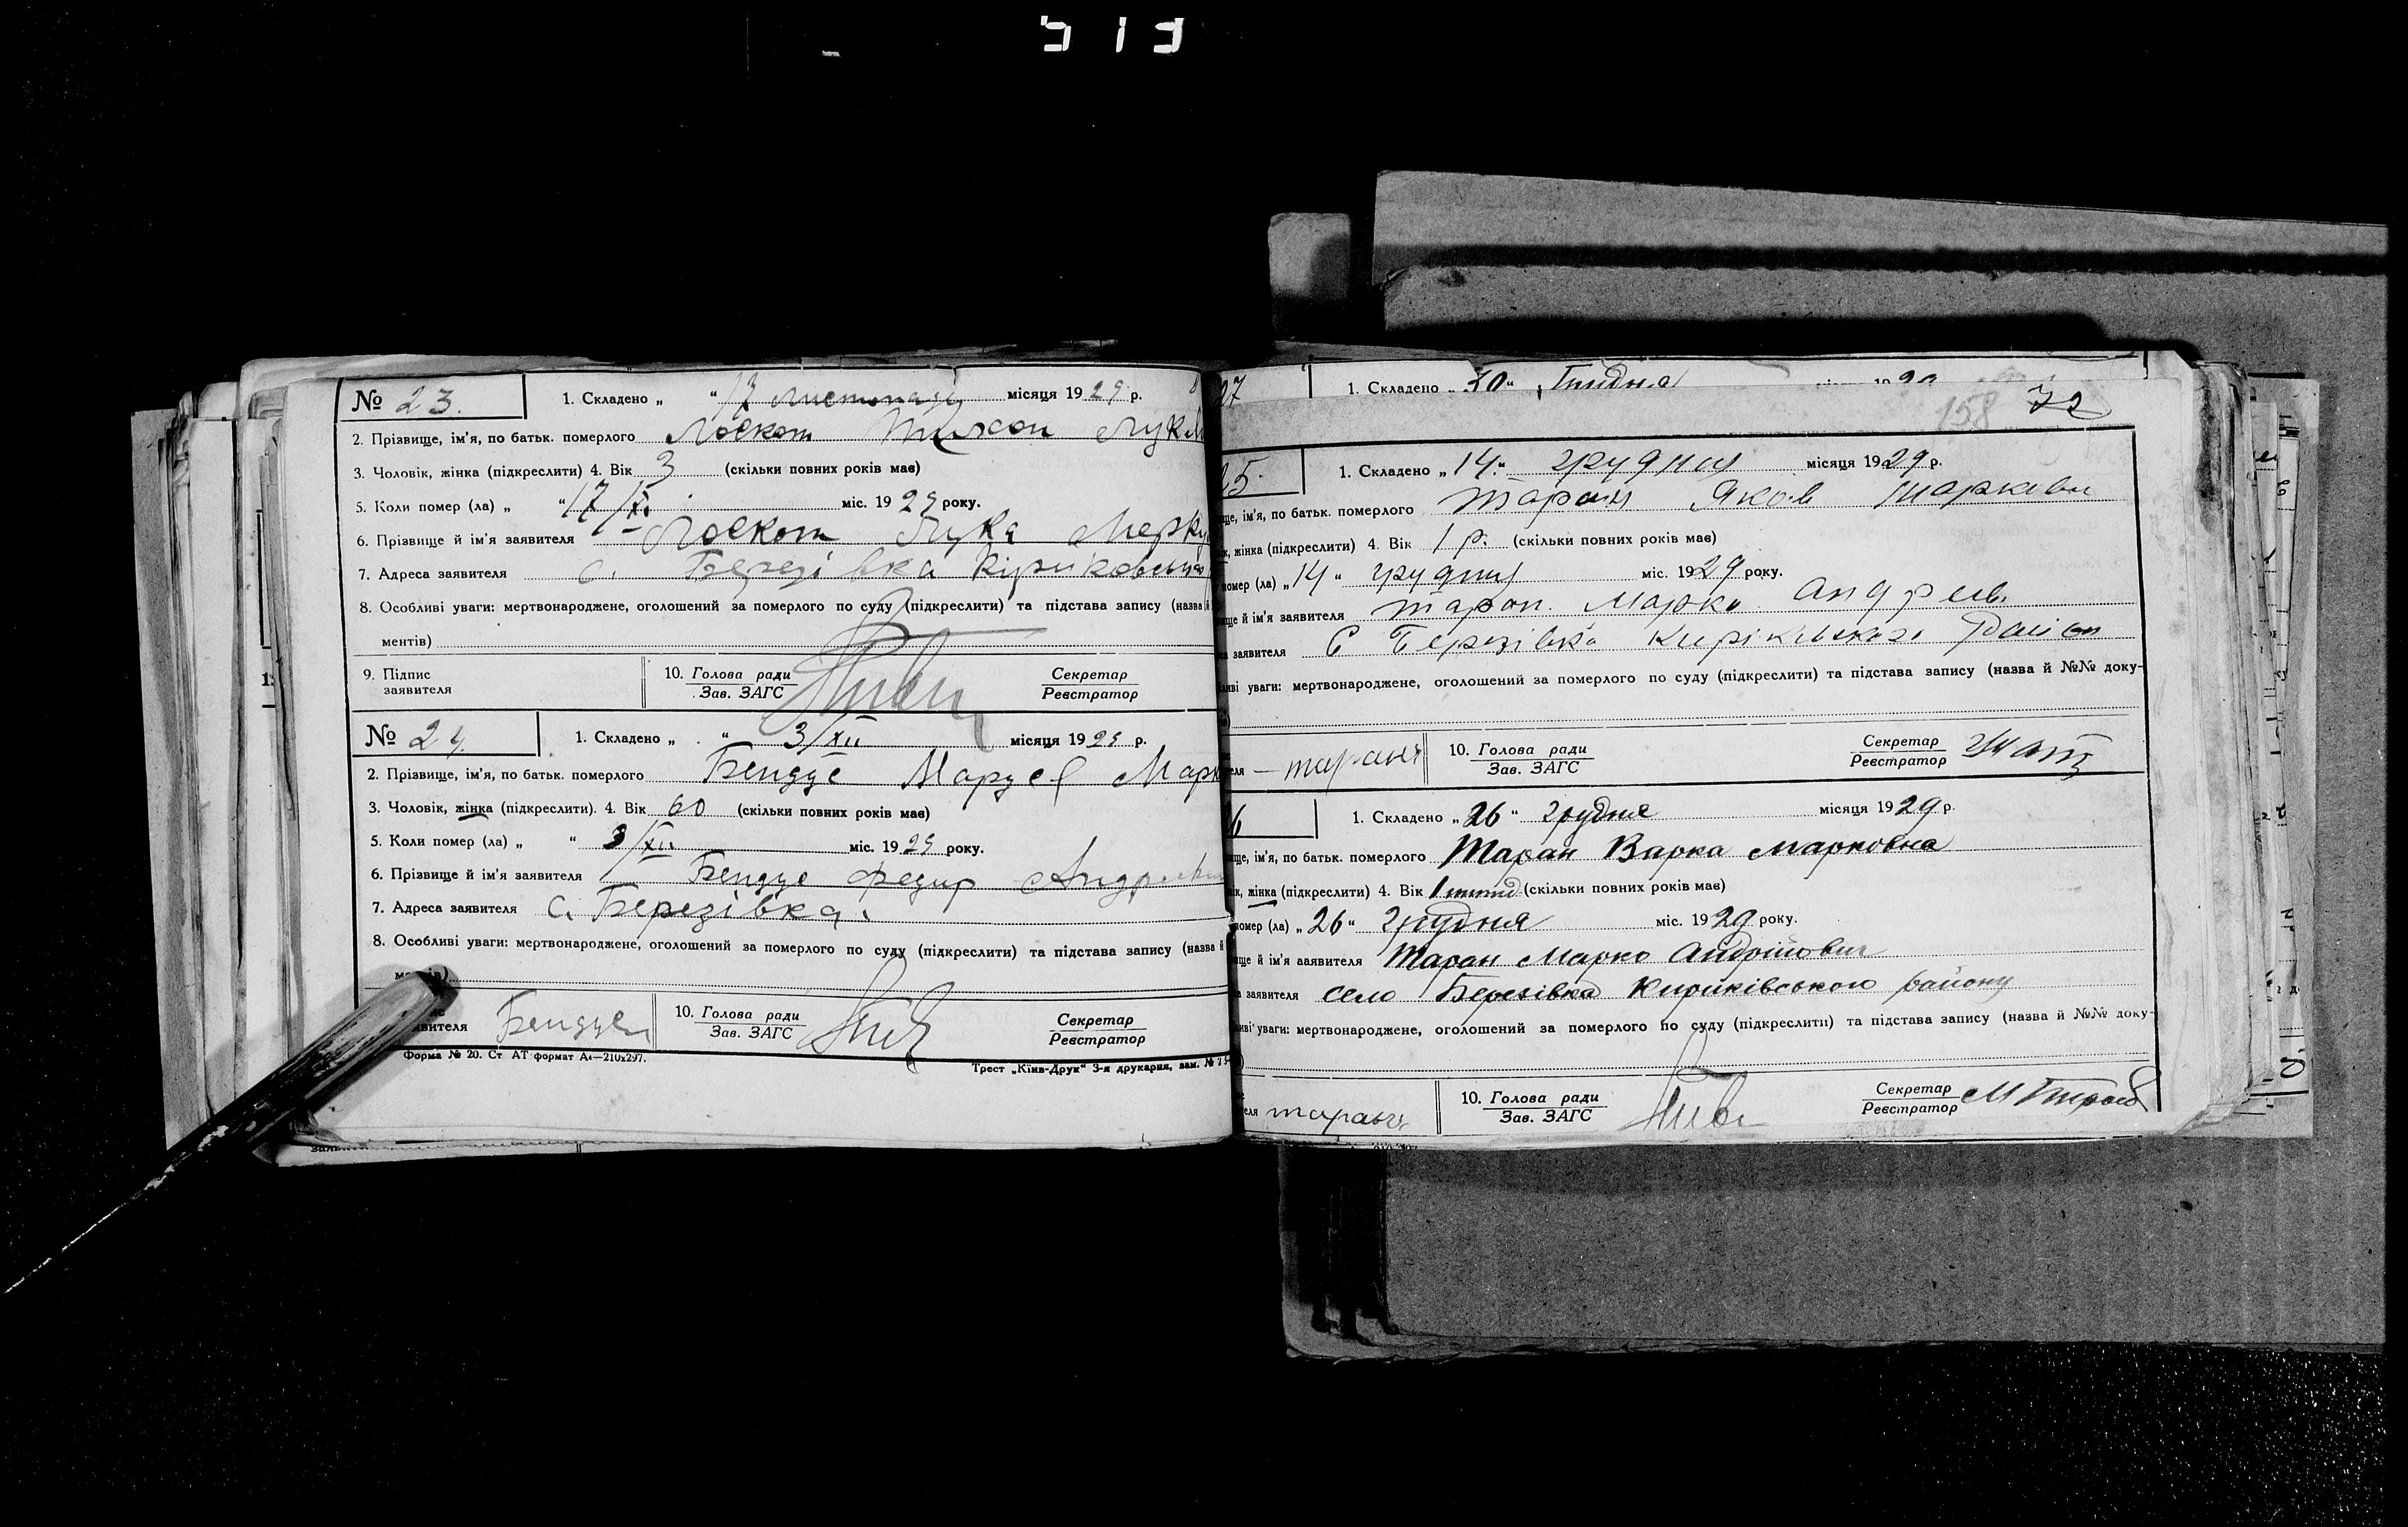 513
№ 23. 1. Складено „ “ 17 листопада місяця 1929 р.
2. Прізвище, ім'я, по батьк. померлого Лоскот Тихон Лук
3. Чоловік, жінка (підкреслити) 4. Вік 3 (скільки повних років має)
5. Коли помер (ла) „ “ 17/XI міс. 1929 року.
6. Прізвище й ім'я заявителя Лоскот Лука Мерку
7. Адреса заявителя с. Березівка Кіриковсько
8. Особливі уваги: мертвонароджене, оголошений за померлого по суду (підкреслити) та підстава запису (назва й
ментів)
9. Підпис заявителя 10. Голова ради Зав. ЗАГС Секретар Реєстратор
№ 24. 1. Складено „ “ 3/XII місяця 1929 р.
2. Прізвище, ім'я, по батьк. померлого Бендус Маруся Марк
3. Чоловік, жінка (підкреслити). 4. Вік 60 (скільки повних років має)
5. Коли помер (ла) „ “ 3/XII міс. 1929 року.
6. Прізвище й ім'я заявителя Федир
7. Адреса заявителя с. Березівка.
8. Особливі уваги: мертвонароджене, оголошений за померлого по суду (підкреслити) та підстава запису (назва й
вителя 10. Голова ради Зав. ЗАГС Секретар Реєстратор
Форма № 20. Ст АТ формат А4—210x297. Трест „Київ-Друк“ 3-я друкарня, зам. №
27 1. Складено „30“ Грудня
158 72
25. 1. Складено „14“ грудня місяця 1929 р.
ще, ім'я, по батьк. померлого Таран Яков Маркови
ік, жінка (підкреслити) 4. Вік 1 р. (скільки повних років має)
помер (ла) „14“ грудня міс. 1929 року.
ище й ім'я заявителя Таран Марко Андреев
са заявителя С Березівка Кириківского Район
ливі уваги: мертвонароджене, оголошений за померлого по суду (підкреслити) та підстава запису (назва й №№ доку-
еля — таран 10. Голова ради Зав. ЗАГС Секретар Реєстратор
6 1. Складено „26“ Грудня місяця 1929 р.
ище, ім'я, по батьк. померлого Таран Варка Марковна
ік, жінка (підкреслити) 4. Вік 1 (скільки повних років має)
помер (ла) „26“ Грудня міс. 1929 року.
ище й ім'я заявителя Таран Марко Андрійович
а заявителя село Березівка Кириківського району
ливі уваги: мертвонароджене, оголошений за померлого по суду (підкреслити) та підстава запису (назва й №№ доку-
еля таран 10. Голова ради Зав. ЗАГС Секретар Реєстратор